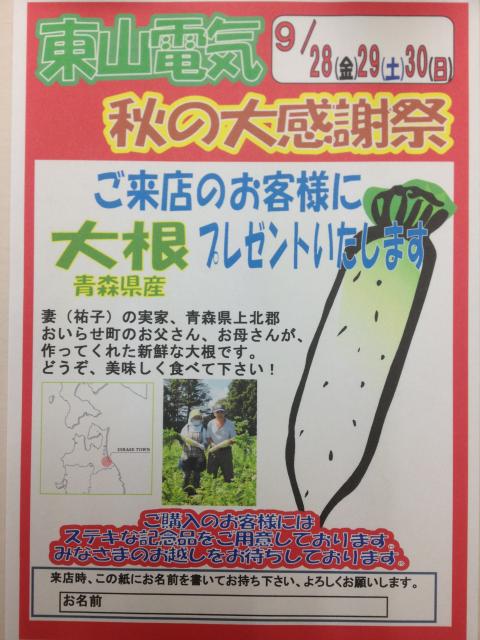 東山電気
9/28(金)29(土)30(日)
秋の大感謝祭
ご来店のお客様に
大根 プレゼントいたします
青森県産
妻（祐子）の実家、青森県上北郡
おいらせ町のお父さん、お母さんが、
作ってくれた新鮮な大根です。
どうぞ、美味しく食べて下さい！
OIRASE TOWN
ご購入のお客様には
ステキな記念品をご用意しております。
みなさまのお越しをお待ちしております。
来店時、この紙にお名前を書いてお持ち下さい、よろしくお願いします。
お名前